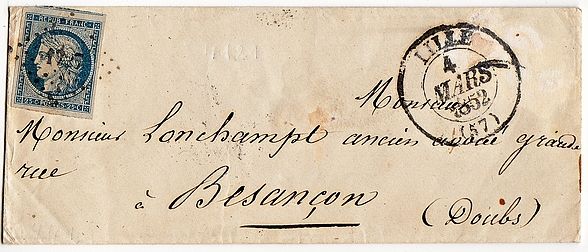 REPUB. FRANC.
25 C. POSTES 25 C.
LILLE
4
MARS
1852
(57)
Monsieur
Monsieur Lonchampt ancien avoué grande
rue
à Besançon
(Doubs)